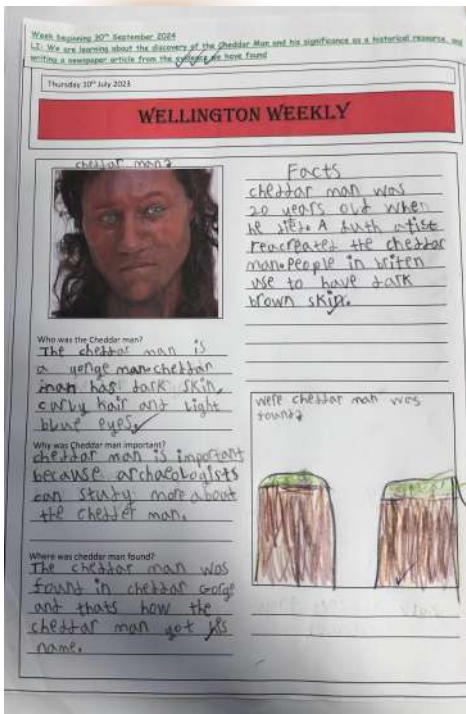 Week beginning 30th September 2024
LI: We are learning about the discovery of the Cheddar Man and his significance as a historical resource, and
writing a newspaper article from the evidence we have found
Thursday 10th July 2023
WELLINGTON WEEKLY
cheddar man?
Who was the Cheddar man?
The cheddar man is
a yonge man. cheddar
man has dark skin,
curly hair and light
blue eyes.
Why was Cheddar man important?
cheddar man is important
because archaeologists
can study more about
the chedder man.
Where was cheddar man found?
The cheddar man was
found in cheddar Gorge
and thats how the
cheddar man got his
name.
Facts
cheddar man was
20 years old when
he died. A duth atist
reacreated the cheddar
man. People in briten
use to have dark
brown skin.
were cheddar man was
found?